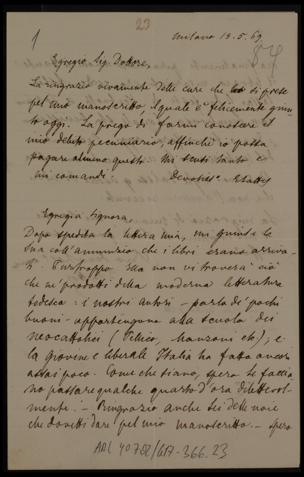 23
1
Milano 13.5.69.
87
Egregio Sig. Dottore,
La ringrazio vivamente delle cure che si prese
pel mio manoscritto il quale è felicemente giun-
to oggi. La prego di farmi conoscere il
mio debito pecuniario, affinchè io possa
pagare almeno questo. Mi scusi tanto e
mi comandi. Devotiss.
Egregia Signora,
Dopo spedita la lettera mia, mi giunse la
Sua coll'annunzio che i libri erano arriva-
ti. Purtroppo Ella non vi troverà ciò
che ne' prodotti della moderna letteratura
tedesca: i nostri autori - parlo de' pochi
buoni - appartengono alla scuola dei
neocattolici (Pellico, Manzoni etc); e
la giovine e liberale Italia ha fatto ancora
assai poco. Come che siano, spero Le faccia-
no passare qualche quarto d'ora dilettevol-
mente. - Ringrazio anche Lei delle noie
che dovetti dare pel mio manoscritto. - Spero
ARL 40788/617-366.23